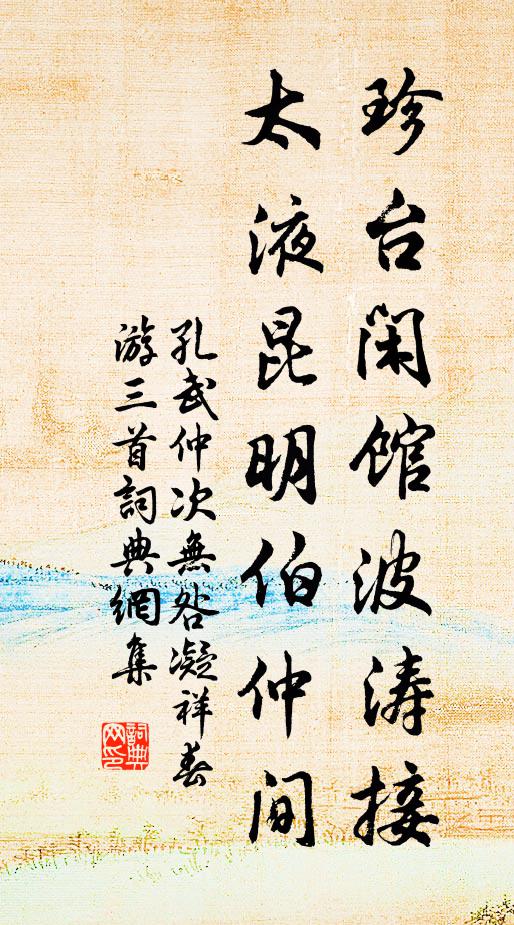 珍台閑館波涛接
太液昆明伯仲間
孔武仲次無咎凝祥春
游三首詞典網集
詞典网印